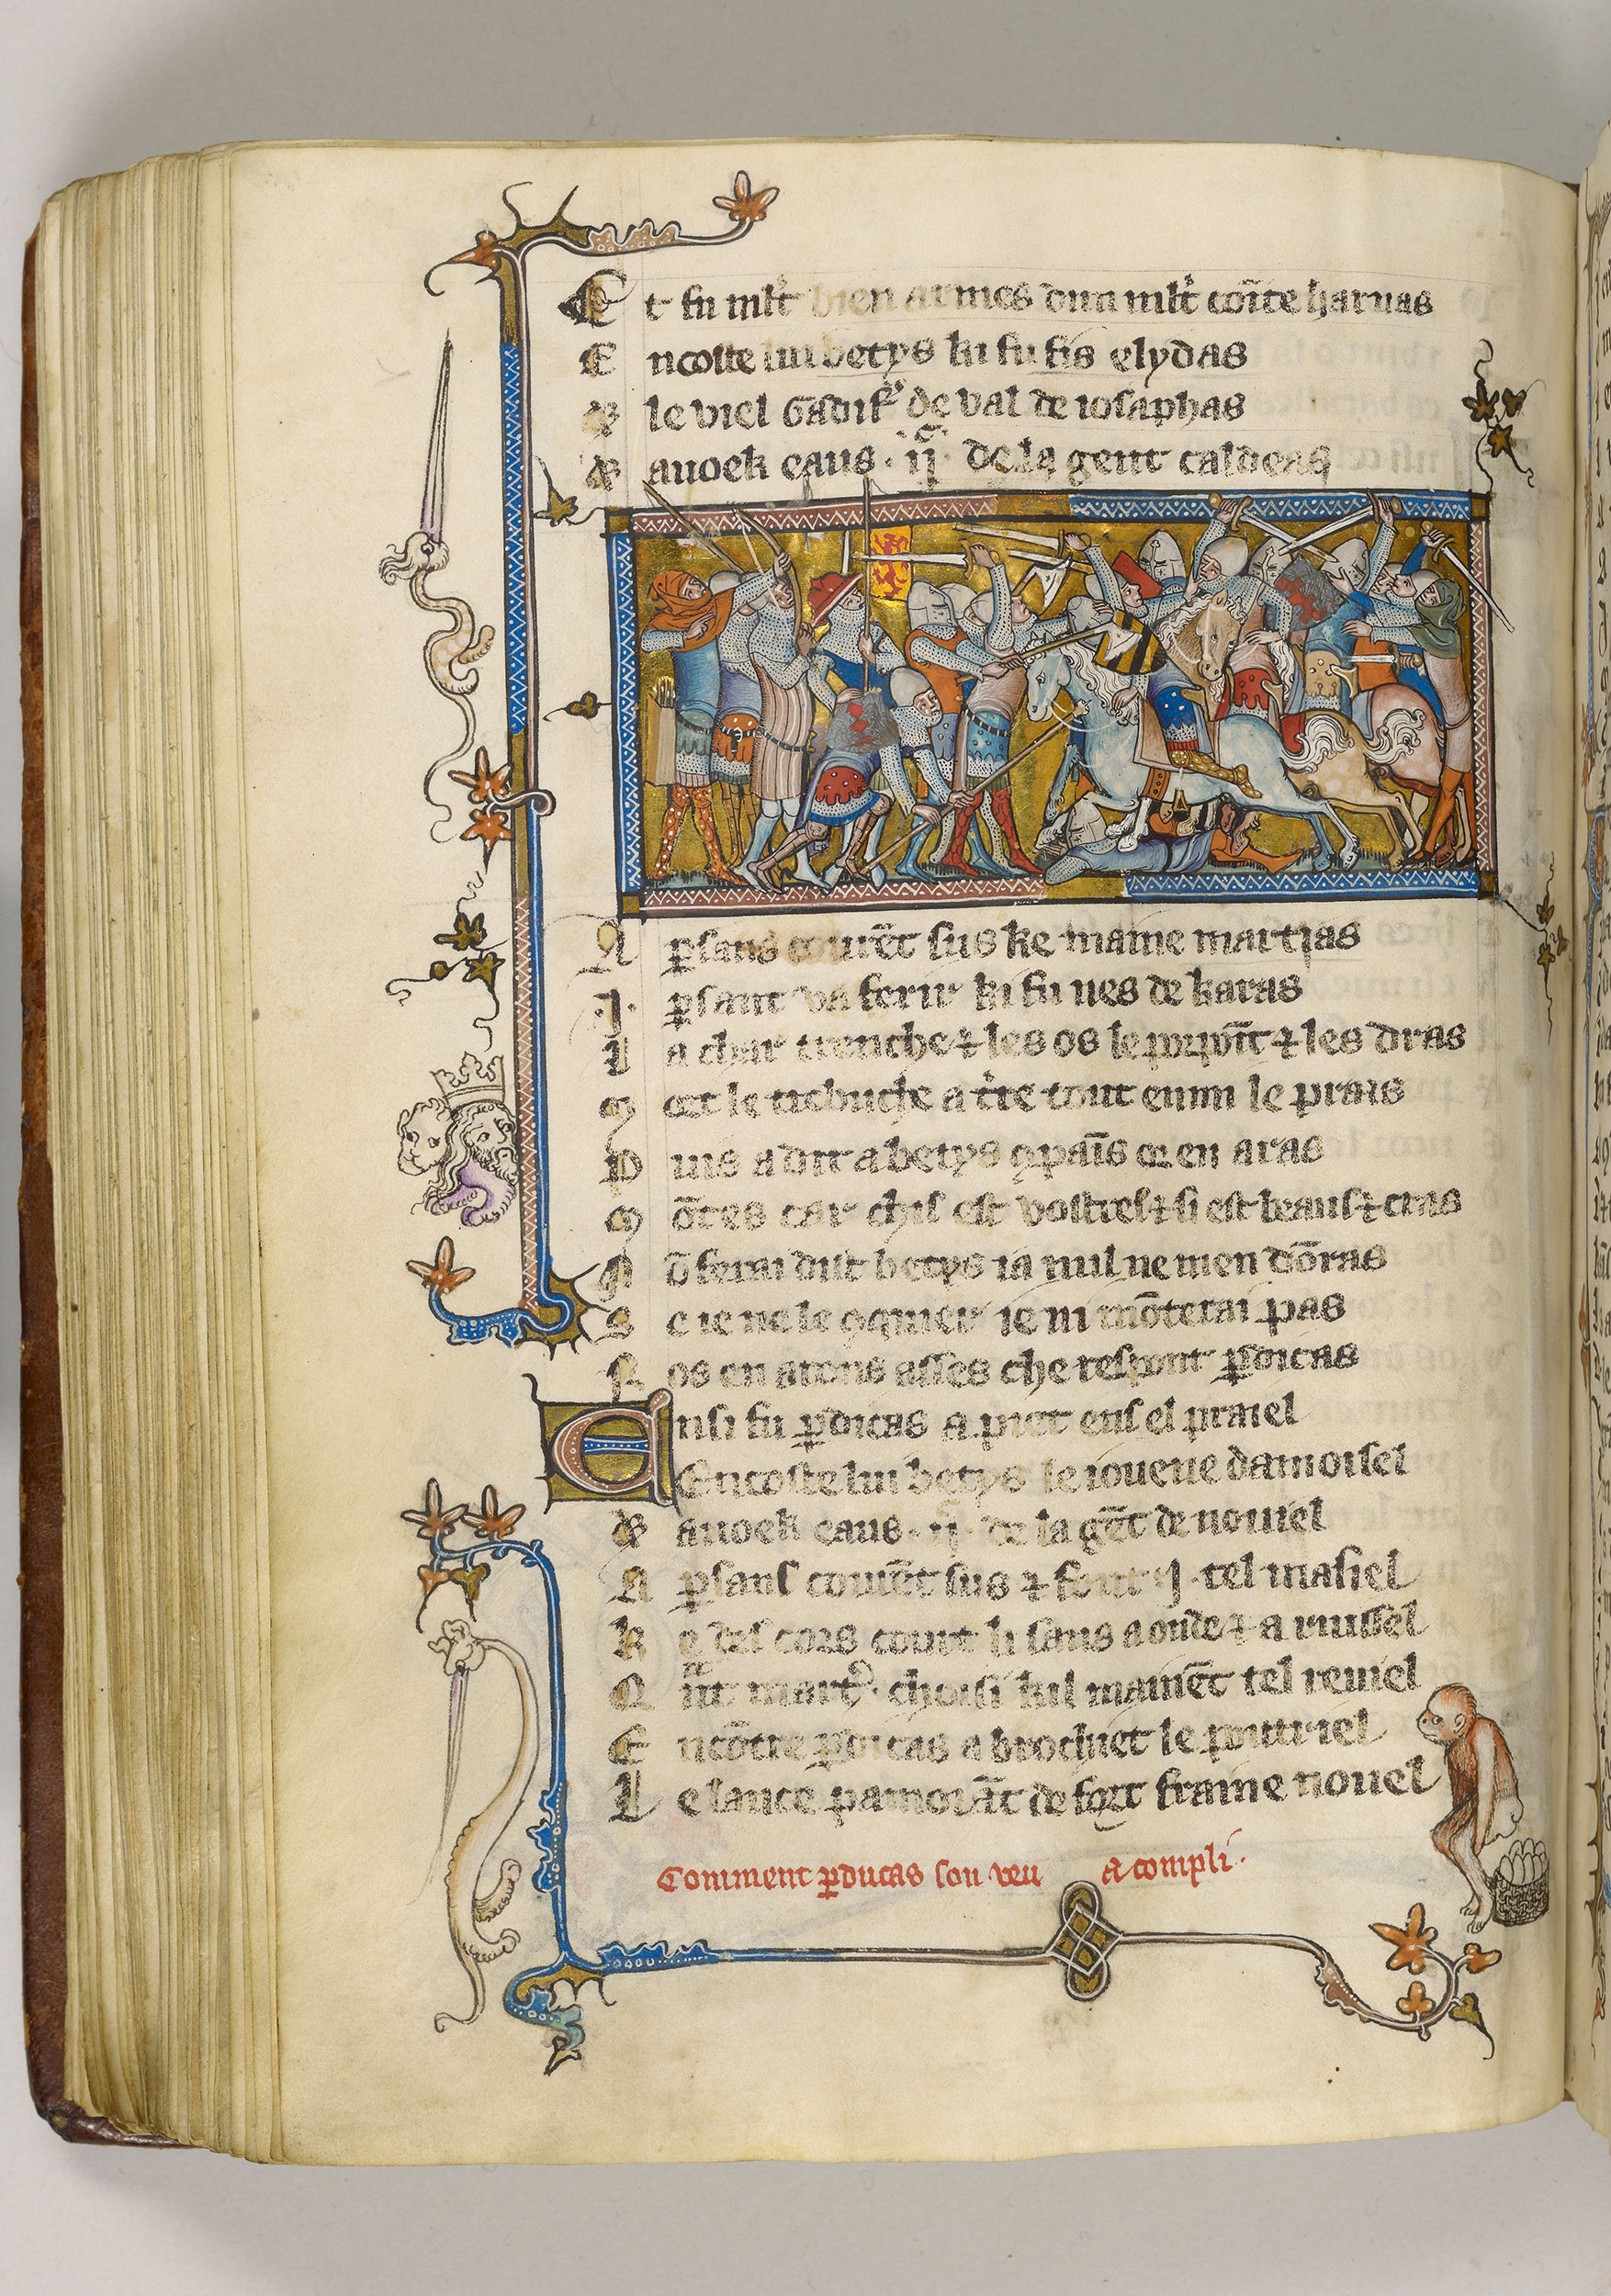 Et fu ml't bien armes dun ml't cōīte harnas
Encoste lui betys ki fu fis elydas
& le viel Gādifʳ de val de iosaphas
& auoek eaus · ij · de la gent caldeas
A ꝑsans couRēt sus ke maine martias
·J· ꝑsant va ferir ki fu nes de karas
La char trenche ⁊ les os le porpoīt ⁊ les dras
Mort le trebuche a t're tout enmi le prais
Puis a dit a betys ꝯpaīs or en aras
Mōtes car chis est vostres ⁊ si est beaus ⁊ cras
Nō ferai dist betys ia nul ne men dōras
Se ie ne le ꝯquier ie ni mōterai pas
Nos en arons asses che respont ꝑdicas
Ensi fu ꝑdicas a piet ens el praiel
Encoste lui betys le iouene damoisel
& auoek eaus · ij · de la gēt de nouiel
A ꝑsans couRēt sus ⁊ font ·J· tel masiel
Ke des cors court li sans a onde ⁊ a ruissel
Quāt mart' · choisi kil mainēt tel reuiel
Encōtre ꝑdicas a brochiet le poutriel
Le lance pamoiāt de fort fraine nouel
Comment ꝑducas son veu a compli·